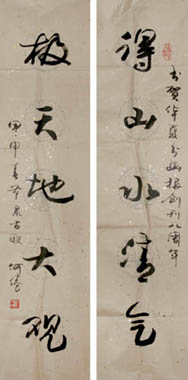 书贺华夏书画报创刊八周年
得山水清气
极天地大观
甲申春